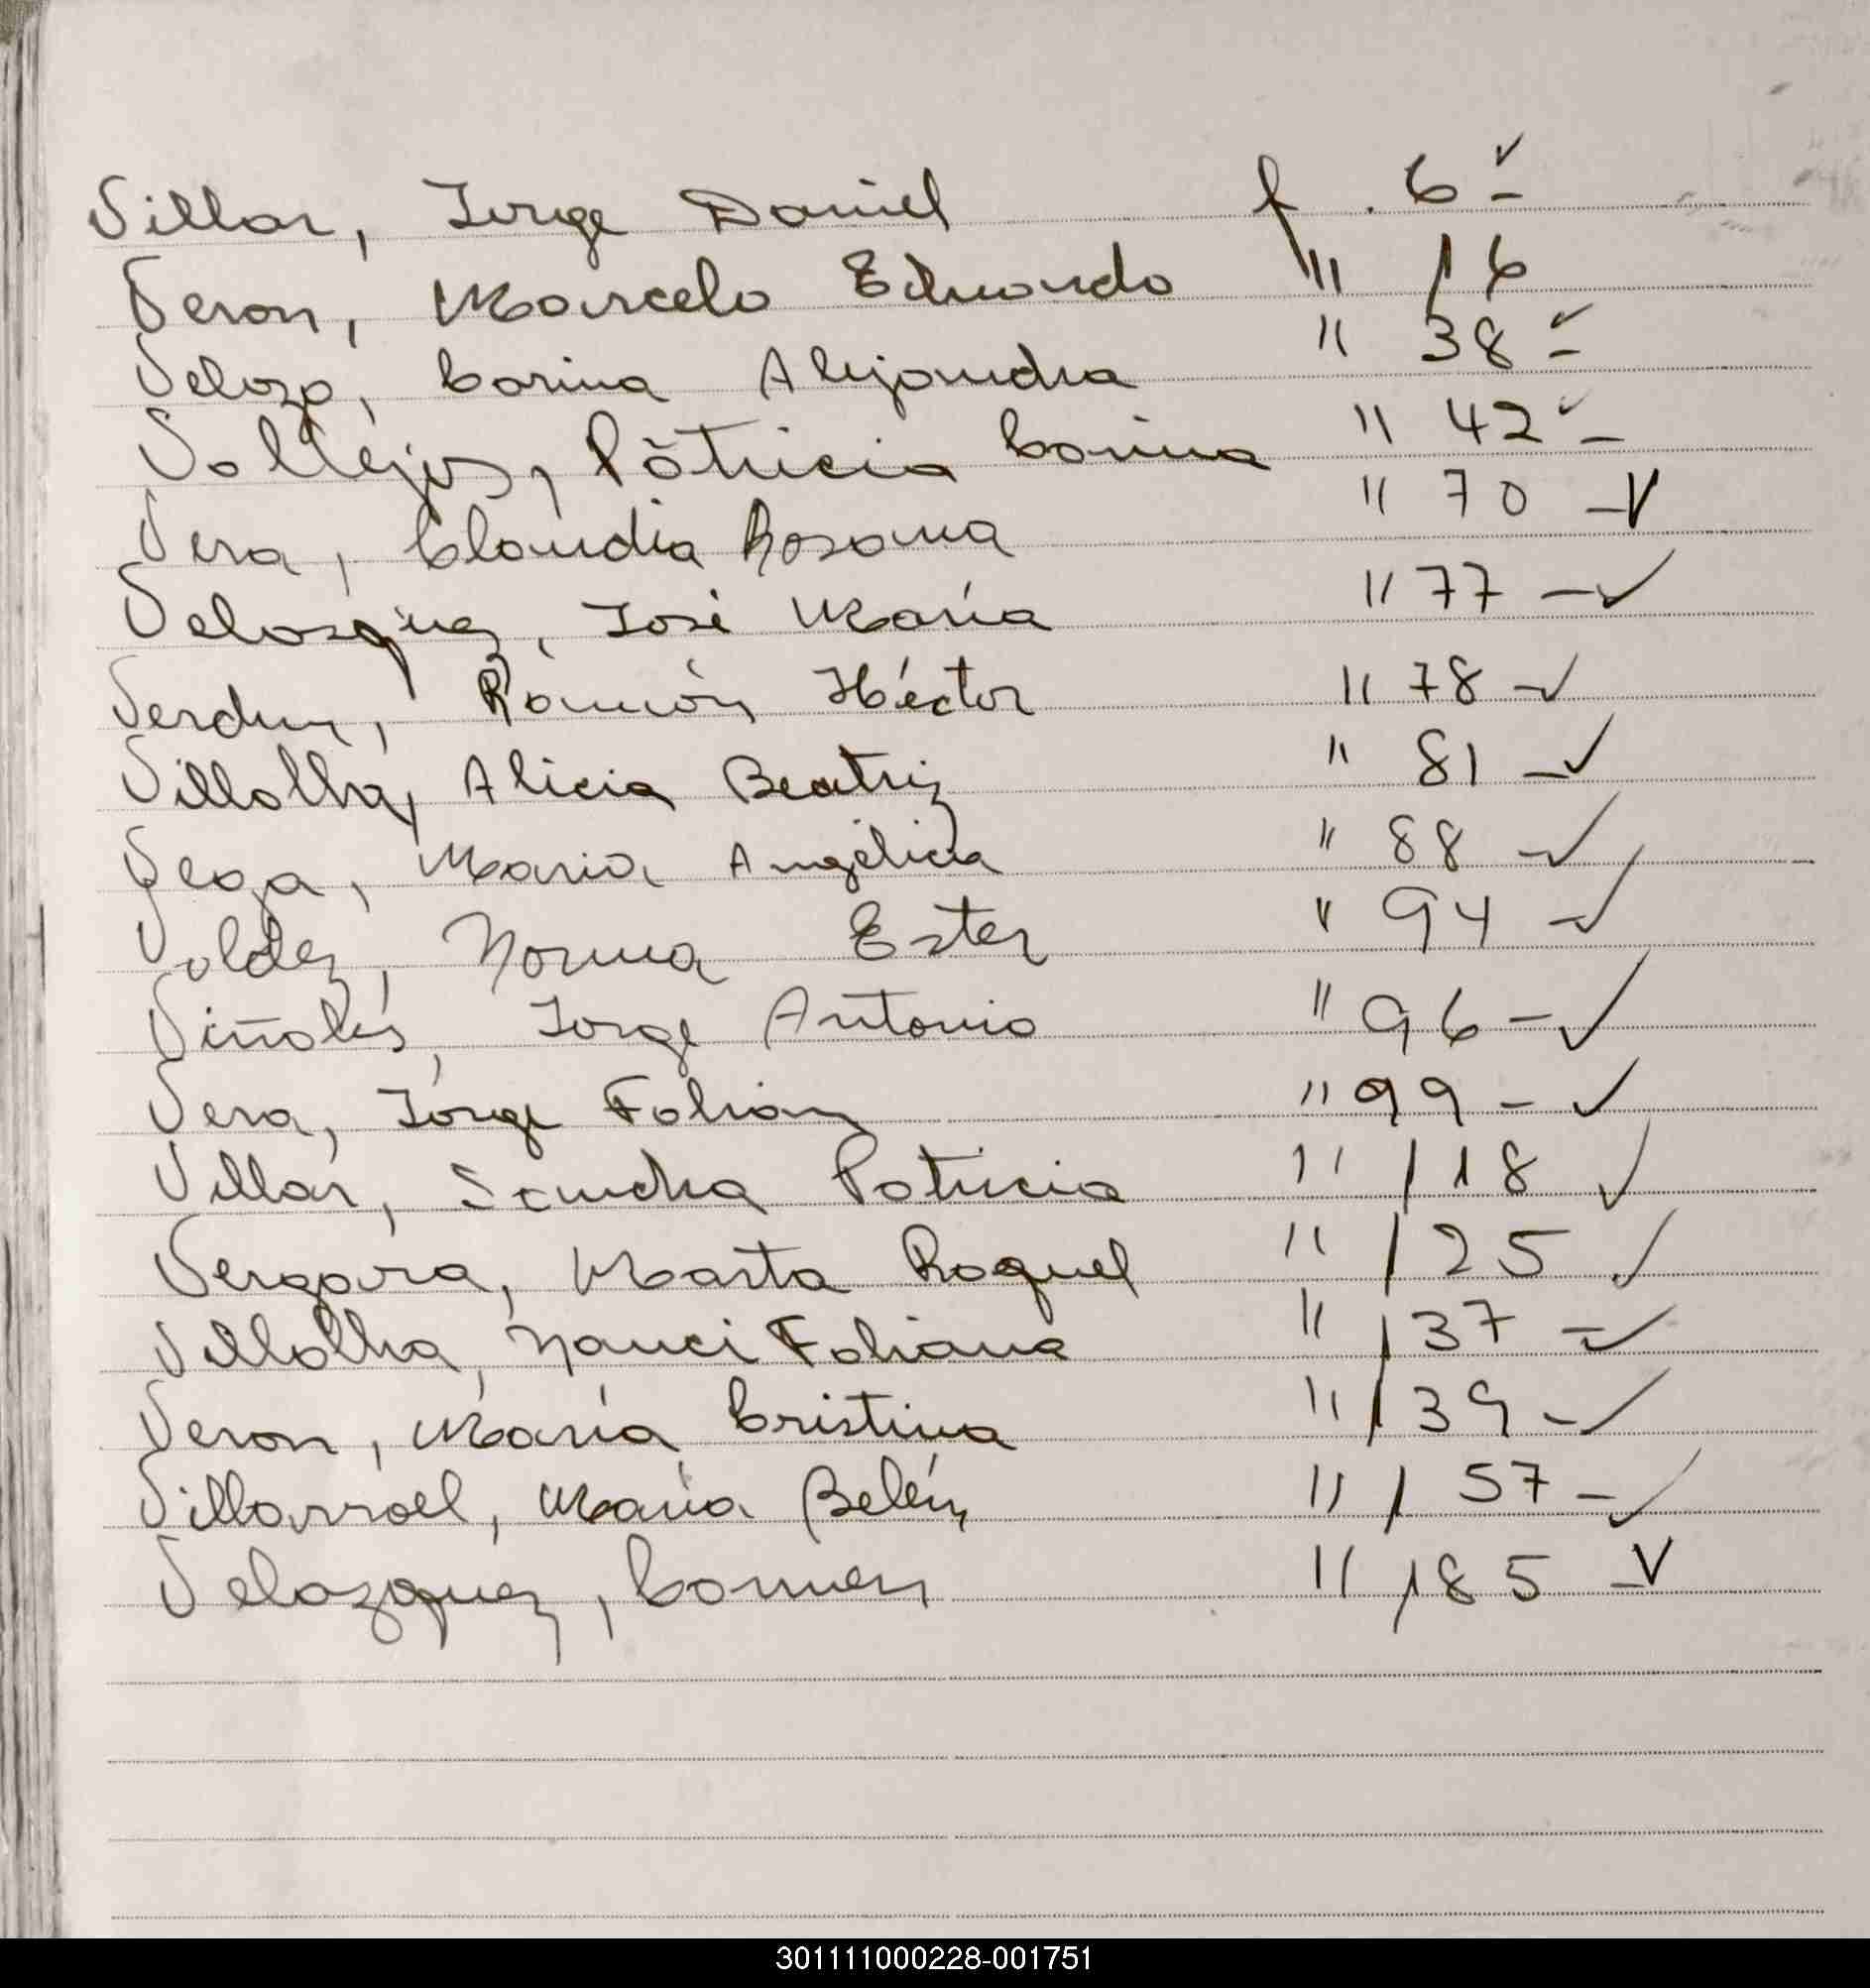 Villar, Jorge Daniel f. 6 ✓ -
Veron, Marcelo Eduardo " 16
Velozo, Carina Alejandra " 38 ✓ -
Vallejos, Patricia Carina " 42 ✓ -
Vera, Claudia Rosana " 70 - ✓
Velasquez, José María " 77 - ✓
Verdun, Ramón Héctor " 78 - ✓
Villalba, Alicia Beatriz " 81 - ✓
Vega, Maria Angélica " 88 - ✓
Valdez, Norma Ester " 94 - ✓
Viñales, Jorge Antonio " 96 - ✓
Vera, Jorge Fabian " 99 - ✓
Villar, Sandra Patricia " 118 ✓
Vergara, Marta Raquel " 125 ✓
Villalba, Nanci Fabiana " 137 - ✓
Veron, María Cristina " 139 - ✓
Villarroel, María Belén " 157 - ✓
Velazquez, Carmen " 185 - ✓
301111000228-001751